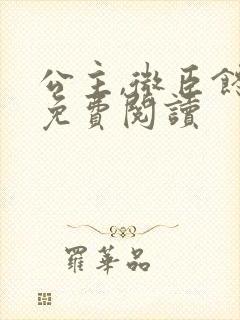 公主,微臣
免費閱讀
羅華品